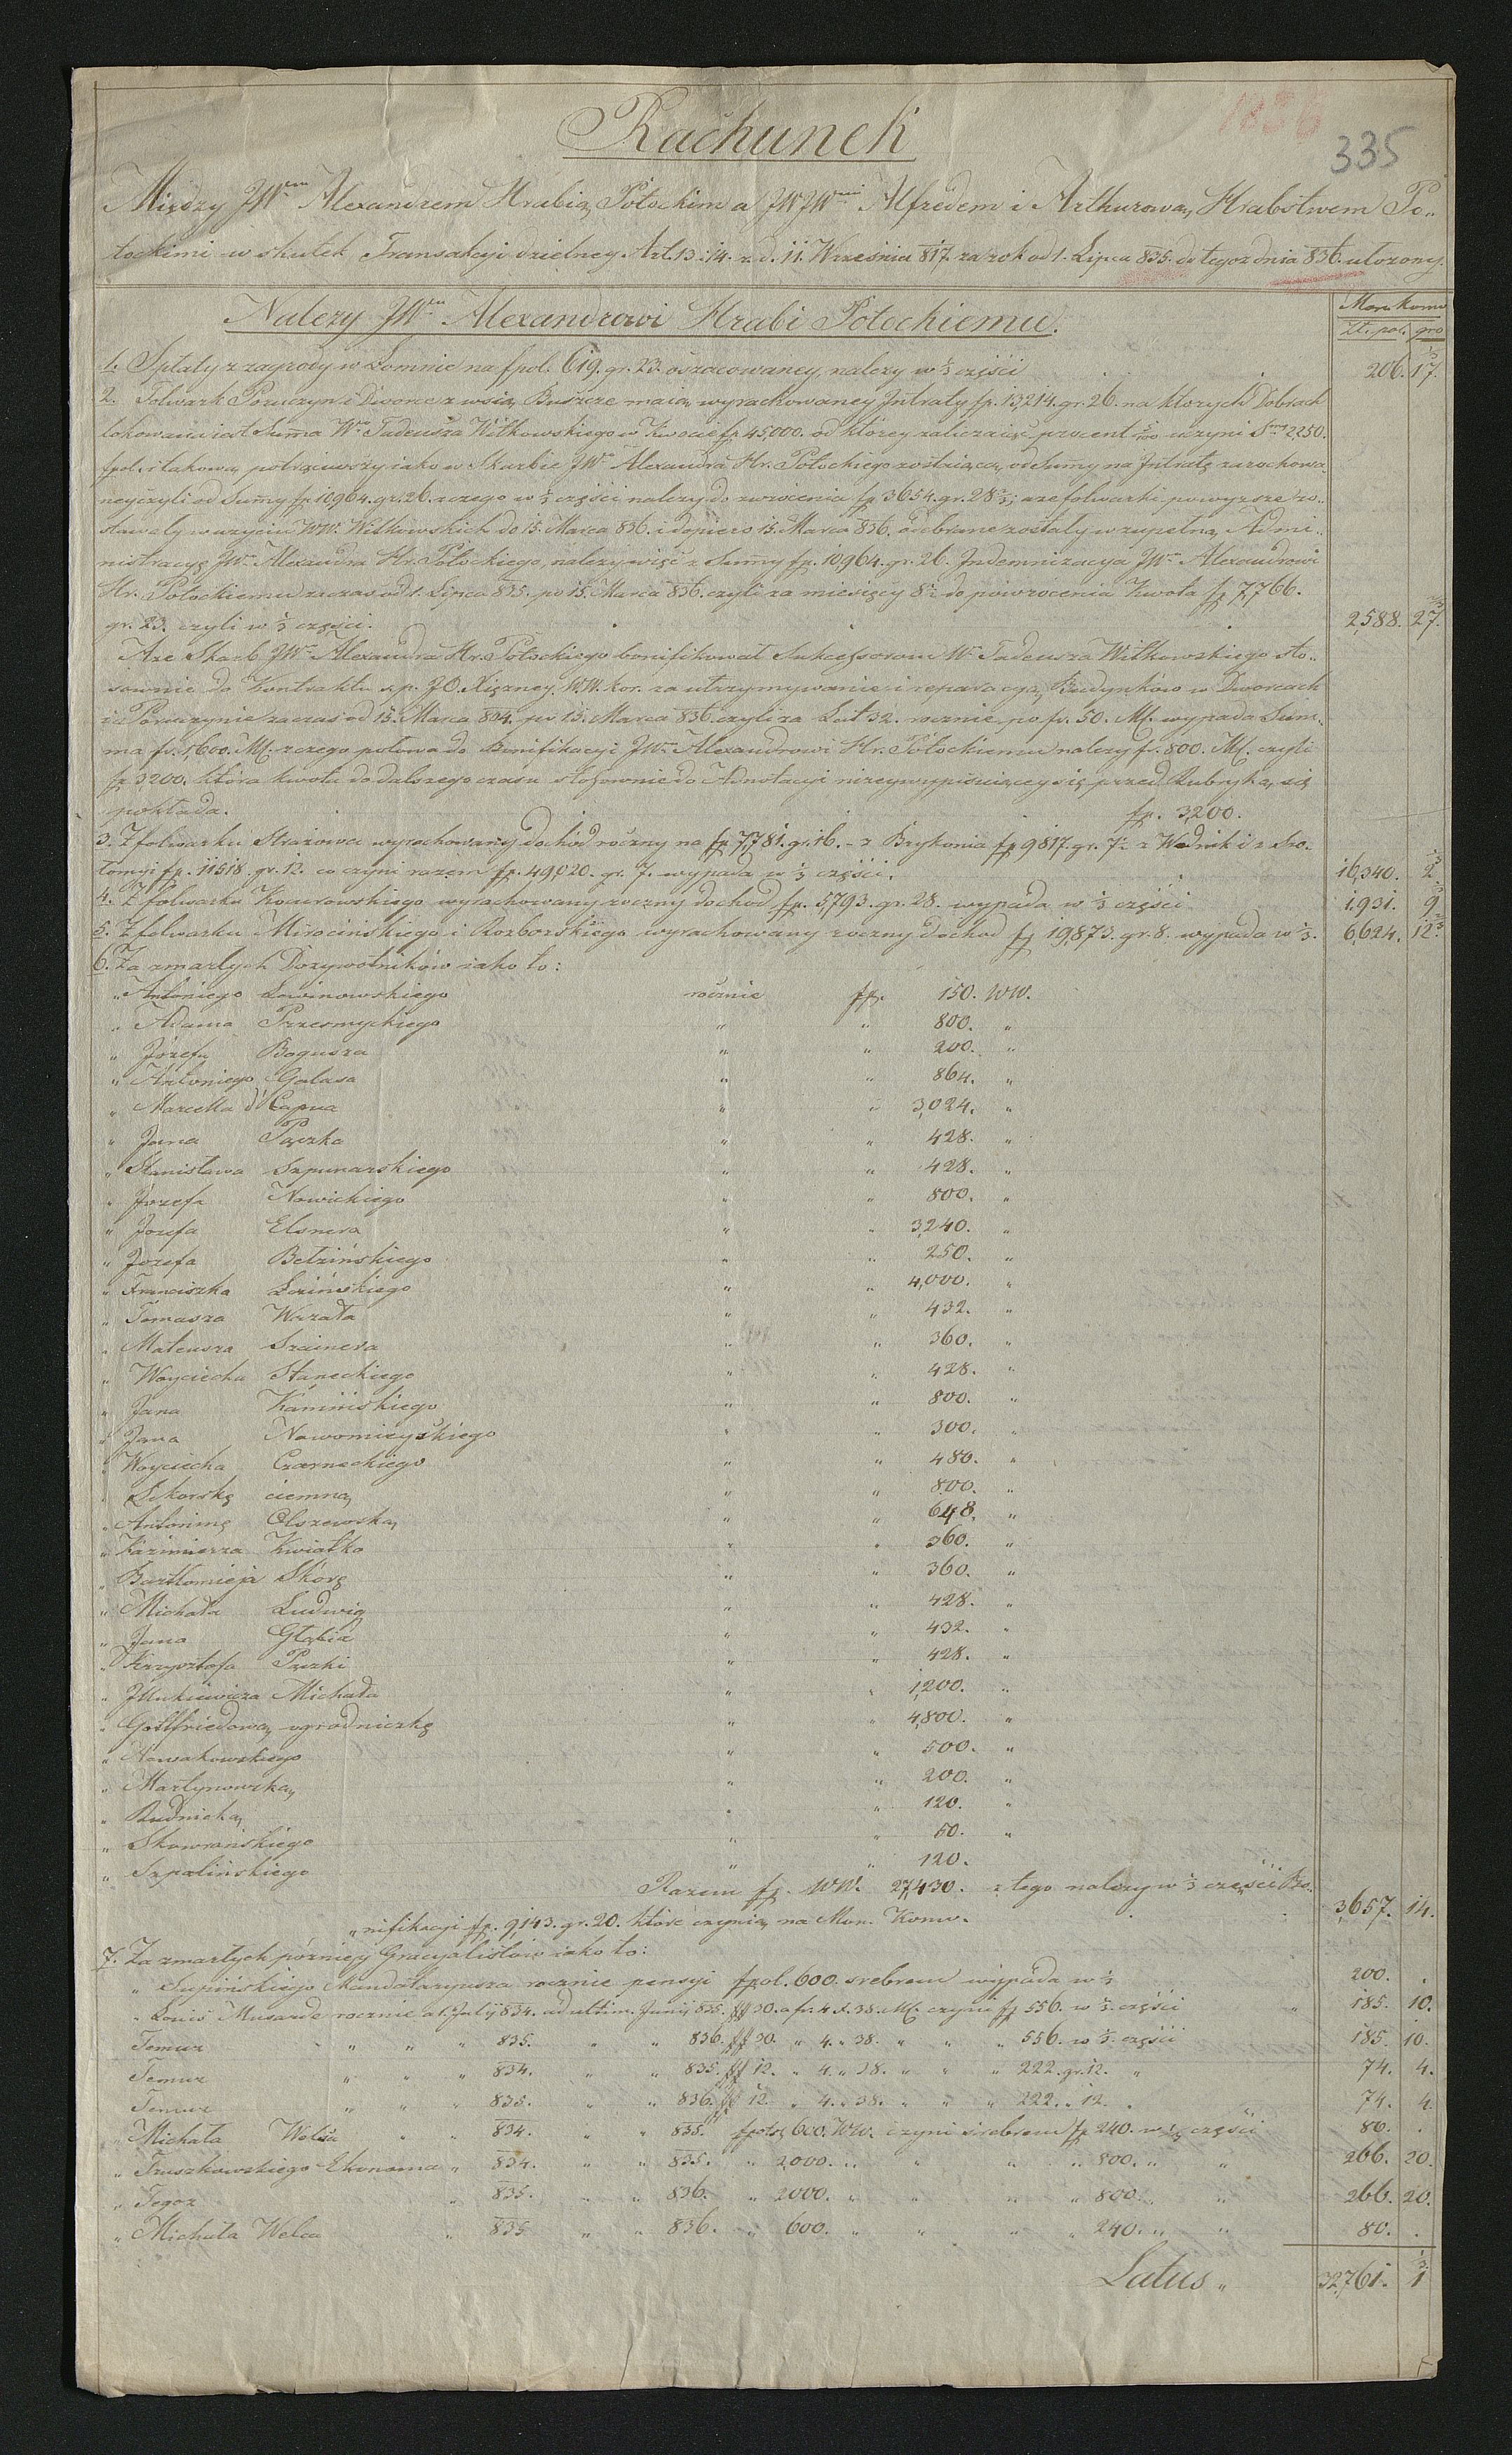 1836
335
Rachunek
Między JWem Alexandrem Hrabią Potockim a JWJWmi Alfredem i Arthurową Hrabstwem Po„
tockimi w skutek Transakcyi dzielney Art. 13 i 14. z d. 11. Września 817 za rok od 1. Lipca 835. do tegoż dnia 836. ułożony.
Należy JWu Alexandrowi Hrabi Potockiemu.
Mon. konw
zł. pol. gro
1. Spłaty z zagrody w Łomnie na fpol. 619. gr. 23. oszacowaney, należy w ⅓ części 206. 17. ⅔
2. Folwark Poruczyn i Dworce z wsią Buszcze maią wyrachowaney Intraty fp. 13,214. gr. 26. na których Dobrach
lokowana iest Suma Wo Tadeusza Witkowskiego w Kwocie fp 45,000. od którey zaliczaiąc procent 5/100 uczyni Smę 2250.
fpol. i takową potrąciwszy iako w Skarbie JWo Alexandra Hr. Potockiego zostaiącą, od Sumy na Intratę zarachowa„
ney czyli od Sumy fp 10964. gr. 26. z czego w ⅓ części należy do zwrócenia fp 3654. gr. 28⅔; a że folwarki powyższe zo„
stawały w użyciu WWch Witkowskich do 15. Marca 836. i dopiero 15. Marca 836. odebrane zostały w zupełną Admi„
nistracyę JWo Alexandra Hr. Potockiego, należy więc z Sumy fp. 10,964. gr. 26. Indemnizacya JWu Alexandrowi
Hr. Potockiemu za czas od 1. Lipca 835. po 15. Marca 836. czyli za miesięcy 8½ do powrócenia Kwota fp 7,766.
gr. 23. czyli w ⅓ części. 2,588. 27. ⅔
A że Skarb JWo Alexandra Hr. Potockiego bonifikował Sukcessorom Wo Tadeusza Witkowskiego sto„
sownie do Kontraktu ś.p. JO. Xiężney WW. kor. za utrzymywanie i reparacyą Budynków w Dworcach
i Poruczynie za czas od 15. Marca 804. po 15. Marca 836. czyli za Lat 32. rocznie po fr. 50. Mk. wypada Sum„
ma fr. 1,600. Mk. z czego połowa do Bonifikacyi JWu Alexandrowi Hr. Potockiemu należy fr. 800. Mk. czyli
fp 3200. która kwota do dalszego czasu stosownie do Adnotacyi niżey wypisuiącey się przed Rubryką się
pokłada. fp. 3,200.
3. Z folwarku Strażowa wyrachowany dochód roczny na fp 7,781. gr. 16. – z Brykonia fp 9817. gr. 7½ z Wodnik i z So„
tomyi fp. 11518. gr. 12. co czyni razem fp. 49,020. gr. 7. wypada w ⅓ części. 16,340. 2 ⅓
4. Z folwarku Koczerowskiego wyrachowany roczny dochód fp. 5,793. gr. 28. wypada w ⅓ części 1.931. 9 ⅓
5. Z folwarku Mirocińskiego i Rozborskiego wyrachowany roczny dochód fp 19,873. gr. 8. wypada w ⅓. 6,624. 12. ⅔
6. Za zmarłych Dożywotników iako to:
„ Antoniego Lewinowskiego rocznie fp. 150. WW.
„ Adama Przesmyckiego „ „ 800. „
„ Józefa Bogusza „ „ 200. „
„ Antoniego Galasa „ „ 864. „
„ Marcella d'Capua „ „ 3,024. „
„ Jana Pączka „ „ 428. „
„ Stanisława Szpunarskiego „ „ 428. „
„ Józefa Nowickiego „ „ 800. „
„ Jozefa Elsnera „ „ 3,240. „
„ Jozefa Betzińskiego „ „ 250. „
„ Franciszka Łozińskiego „ „ 4,000. „
„ Tomasza Wrzata „ „ 432. „
„ Mateusza Szainera „ „ 360. „
„ Woyciecha Staneckiego „ „ 428. „
„ Jana Kamińskiego „ „ 800. „
„ Jana Nowomieyskiego „ „ 300. „
„ Woyciecha Czarneckiego „ „ 480. „
„ Sikorską ciemną „ „ 800. „
„ Antoninę Olszewską „ „ 648. „
„ Kazimierza Kwiatka „ „ 360. „
„ Bartłomieja Skórę „ „ 360. „
„ Michała Ludwig „ „ 428. „
„ Jana Głąbia „ „ 432. „
„ Krzysztofa Pączki „ „ 428. „
„ Illukiewicza Michała „ „ 1,200. „
„ Gottfriedową ogrodniczkę „ „ 4,800. „
„ Nowakowskiego „ 500. „
„ Martynowską „ „ 200. „
„ Rudnicką „ „ 120. „
„ Skowrońskiego „ „ 50. „
„ Szpalińskiego „ „ 120.
Razem fp. WW. 27,430. z tego należy w ⅓ części Bo„
„nifikacyi fp. 9,143. gr. 20. które czynią na Mon. Konw. 3,657. 14.
7. Za zmarłych pózniey Gracyalistów iako to:
„ Supińskiego Mandataryusza rocznie pensyi fpol. 600. srebrem wypada w ⅓ 200. .
„ Louis Musarde rocznie a 1. July 834. ad ultim. Juny 835. ## 30. a fr. 4 x. 38. Mk. czynią fp 556. w ⅓ części 185. 10.
Temuż „ „ „ 835. „ „ 836. ## 30. „ 4. „ 38. „ „ „ 556. w ⅓ części 185. 10.
Temuż „ „ „ 834. „ „ 835. ## 12. „ 4. „ 38. „ „ „ 222. gr. 12. „ 74. 4.
Temuż „ „ „ 835. „ „ 836. ## 12. „ 4. „ 38. „ „ „ 222. „ 12. „ 74. 4.
„ Michała Welca „ „ 834. „ „ 835. fpol. 600. WW. czyni srebrem fp 240. w ⅓ części 80. .
„ Truszkowskiego Ekonoma „ 834. „ „ 835. „ 2,000. „ „ „ „ 800. „ „ 266. 20.
„ Tegoż „ 835. „ „ 836. „ 2000. „ „ „ „ 800. „ „ 266. 20.
„ Michała Welca „ 835 „ „ 836. „ 600. „ „ „ „ 240. „ „ 80. .
Latus „ 32,761. 1 ⅓